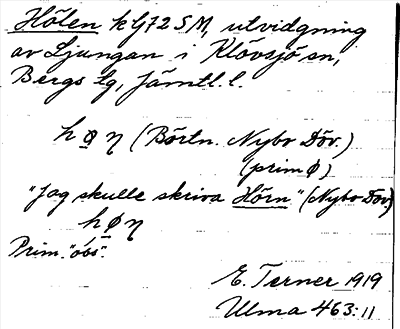 Hölen k G72 SM, utvidgning
av Ljungan i Klövsjö sn,
Bergs tg, Jämtl. l.
h ø̱ η (Börtn. Nybo Döv.)
(prim ø)
"Jag skulle skriva Hörn" (Nybo Döv)
h ø η
Prim. "óòs".
E. Terner 1919
Ulma 463:11